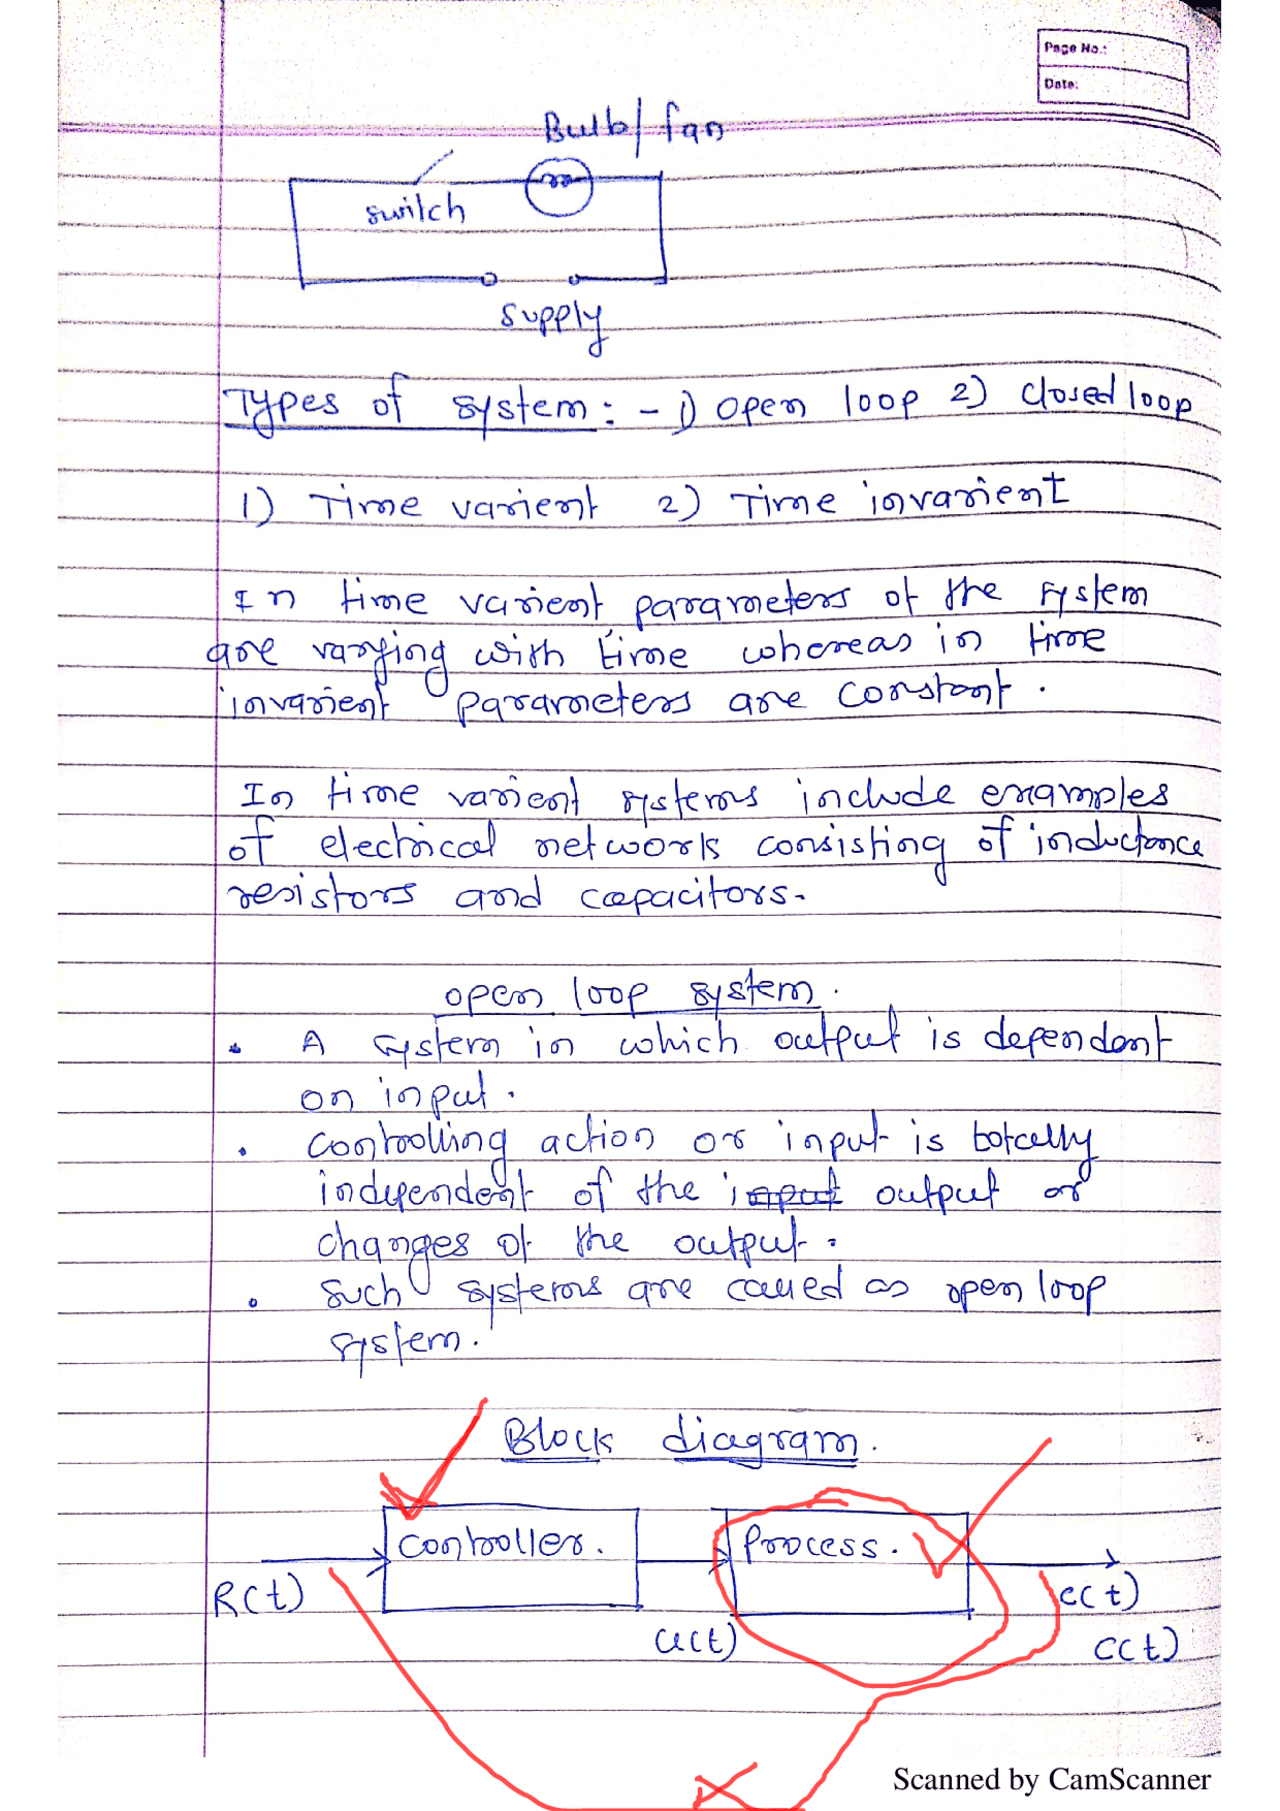 Page No.:
Date:
Bulb/fan
switch
supply
Types of system: - 1) open loop 2) closed loop
1) Time varient 2) Time invarient
In time varient parameters of the system
are varying with time whereas in time
invarient parameters are constant.
In time varient systems include examples
of electrical network consisting of inductance
resistors and capacitors.
open loop system.
• A system in which output is dependent
on input.
• controlling action or input is totally
independent of the input output or
changes of the output.
• Such systems are called as open loop
system.
Block diagram.
controller.
Process.
R(t)
u(t)
c(t)
C(t)
Scanned by CamScanner